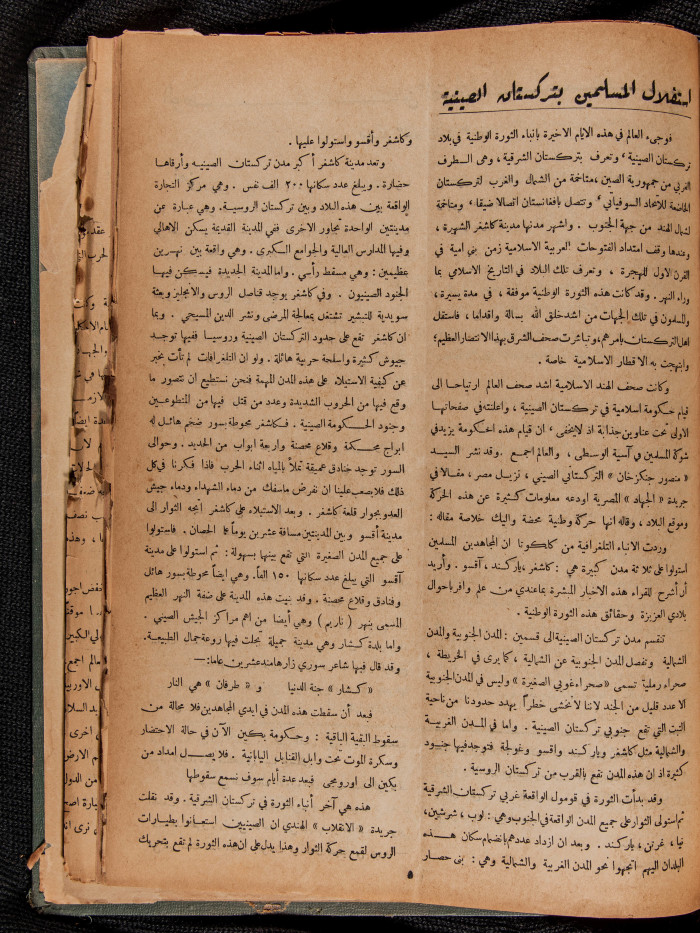 استقلال المسلمين بتركستان الصينية
فوجىء العالم في هذه الايام الاخيرة بانباء الثورة الوطنية في بلاد
تركستان الصينية ، وتعرف بتركستان الشرقية ، وهى الطرف
الغربي من جمهورية الصين ، متاخمة من الشمال والغرب لتركستان
الخاضعة للاتحاد السوفياتي ، وتتصل بافغانستان اتصالا ضيقا ، ومتاخمة
لشمال الهند من جهة الجنوب . واشهر مدنها مدينة كاشغر الشهيرة ،
وعندها وقف امتداد الفتوحات العربية الاسلامية زمن بني امية في
القرن الاول للهجرة ، وتعرف تلك البلاد في التاريخ الاسلامي بما
وراء النهر . وقد كانت هذه الثورة الوطنية موفقة ، في مدة يسيرة ،
والمسلمون في تلك الجهات من اشد خلق الله بسالة واقداما ، فاستقل
اهل التركستان بامرهم ، وتباشرت صحف الشرق بهذا الانتصار العظيم ؛
وابتهجت به الاقطار الاسلامية خاصة .
وكانت صحف الهند الاسلامية اشد صحف العالم ارتياحا الى
قيام حكومة اسلامية في تركستان الصينية ، واعلنته في صفحاتها
الاولى تحت عناوين جذابة اذ لايخفى ، ان قيام هذه الحكومة يزيد في
شوكة المسلمين في آسية الوسطى ، والعالم اجمع . وقد نشر السيد
« منصور جنكز خان » التركستاني الصيني ، نزيل مصر ، مقالا في
جريدة « الجهاد » المصرية اودعه معلومات كثيرة عن هذه الحركة
وموقع البلاد ، وقاله انها حركة وطنية محضة واليك خلاصة مقاله :
وردت الانباء التلغرافية من كلكوتا ان المجاهدين المسلمين
استولوا على ثلاثة مدن كبيرة هي : كاشغر ، ياركند ، آقسو . وأريد
أن أشرح للقراء هذه الاخبار المبشرة بما عندي من علم وافر باحوال
بلادي العزيزة وحقائق هذه الثورة الوطنية .
تنقسم مدن تركستان الصينية الى قسمين : المدن الجنوبية والمدن
الشمالية وتفصل المدن الجنوبية عن الشمالية ، كما يرى في الخريطة ،
صحراء رملية تسمى « صحراء غوبي الصغيرة » وليس في المدن الجنوبية
الا عدد قليل من الجند لاننا لانخشى خطراً يهدد حدودنا من ناحية
التبت التي تقع جنوبي تركستان الصينية . واما في المدن الغربية
والشمالية مثل كاشغر وياركند واقسو وغولجة فتوجد فيها جنود
كثيرة اذ ان هذه المدن تقع بالقرب من تركستان الروسية .
وقد بدأت الثورة في قومول الواقعة غربي تركستان الشرقية
ثم استولى الثوار على جميع المدن الواقعة في الجنوب وهي : لوب ، شرشين ،
نيا ، غرتن ، ياركند . وبعد ان ازداد عددهم بانضمام سكان هذه
البلدان اليهم اتجهوا نحو المدن الغربية والشمالية وهي : بني حصار
وكاشغر وأقسو واستولوا عليها .
وتعد مدينة كاشغر أكبر مدن تركستان الصينية وأرقاها
حضارة . ويبلغ عدد سكانها ٢٠٠ الف نفس . وهي مركز التجارة
الواقعة بين هذه البلاد وبين تركستان الروسية . وهي عبارة عن
مدينتين الواحدة تجاور الاخرى ففي المدينة القديمة يسكن الاهالي
وفيها المدارس العالية والجوامع الكبرى . وهي واقعة بين نهرين
عظيمين : وهي مسقط رأسي . واما المدينة الجديدة فيسكن فيها
الجنود الصينيون . وفي كاشغر يوجد قناصل الروس والانجليز وبعثة
سويدية للتبشير تشتغل بمعالجة المرضى ونشر الدين المسيحي . وبما
ان كاشغر تقع على حدود التركستان الصينية وروسيا ففيها توجد
جيوش كثيرة واسلحة حربية هائلة . ولو ان التلغرافات لم تأت بخبر
عن كيفية الاستيلاء على هذه المدن المهمة فنحن نستطيع ان نتصور ما
وقع فيها من الحروب الشديدة وعدد من قتل فيها من المتطوعين
وجنود الحكومة الصينية . فكاشغر محوطة بسور ضخم هائل له
ابراج محكمة وقلاع محصنة واربعة ابواب من الحديد . وحوالى
السور توجد خنادق عميقة تملأ بالمياه اثناء الحرب فاذا فكرنا في كل
ذلك فلا يصعب علينا ان نفرض ماسفك من دماء الشهداء ودماء جيش
العدو بجوار قلعة كاشغر . وبعد الاستيلاء على كاشغر اتجه الثوار الى
مدينة أقسو وبين المدينتين مسافة عشرين يوماً على الحصان . فاستولوا
على جميع المدن الصغيرة التي تقع بينها بسهولة : ثم استولوا على مدينة
آقسو التي يبلغ عدد سكانها ١٥٠ الفاً . وهي ايضاً محوطة بسور هائل
وخنادق وقلاع محصنة . وقد بنيت هذه المدينة على ضفة النهر العظيم
المسمى بنهر ( تاريم ) وهي أيضا من اهم مراكز الجيش الصيني .
واما بلدة كسار وهي مدينة جميلة تجلت فيها روعة جمال الطبيعة .
وقد قال فيها شاعر سوري زارها منذ عشرين عاما : —
« كشار » جنة الدنيا و « طرفان » هي النار
فبعد أن سقطت هذه المدن في ايدي المجاهدين فلا محالة من
سقوط البقية الباقية : وحكومة بكين الآن في حالة الاحتضار
وسكرة الموت تحت وابل القنابل اليابانية . فلا يصل امداد من
بكين الى اورومجي فبعد عدة أيام سوف نسمع سقوطها
هذه هي آخر أنباء الثورة في تركستان الشرقية . وقد نقلت
جريدة « الانقلاب » الهندي ان الصينيين استعانوا بطيارات
الروس لقمع حركة الثوار وهذا يدل على ان هذه الثورة لم تقع بتحريك
٥